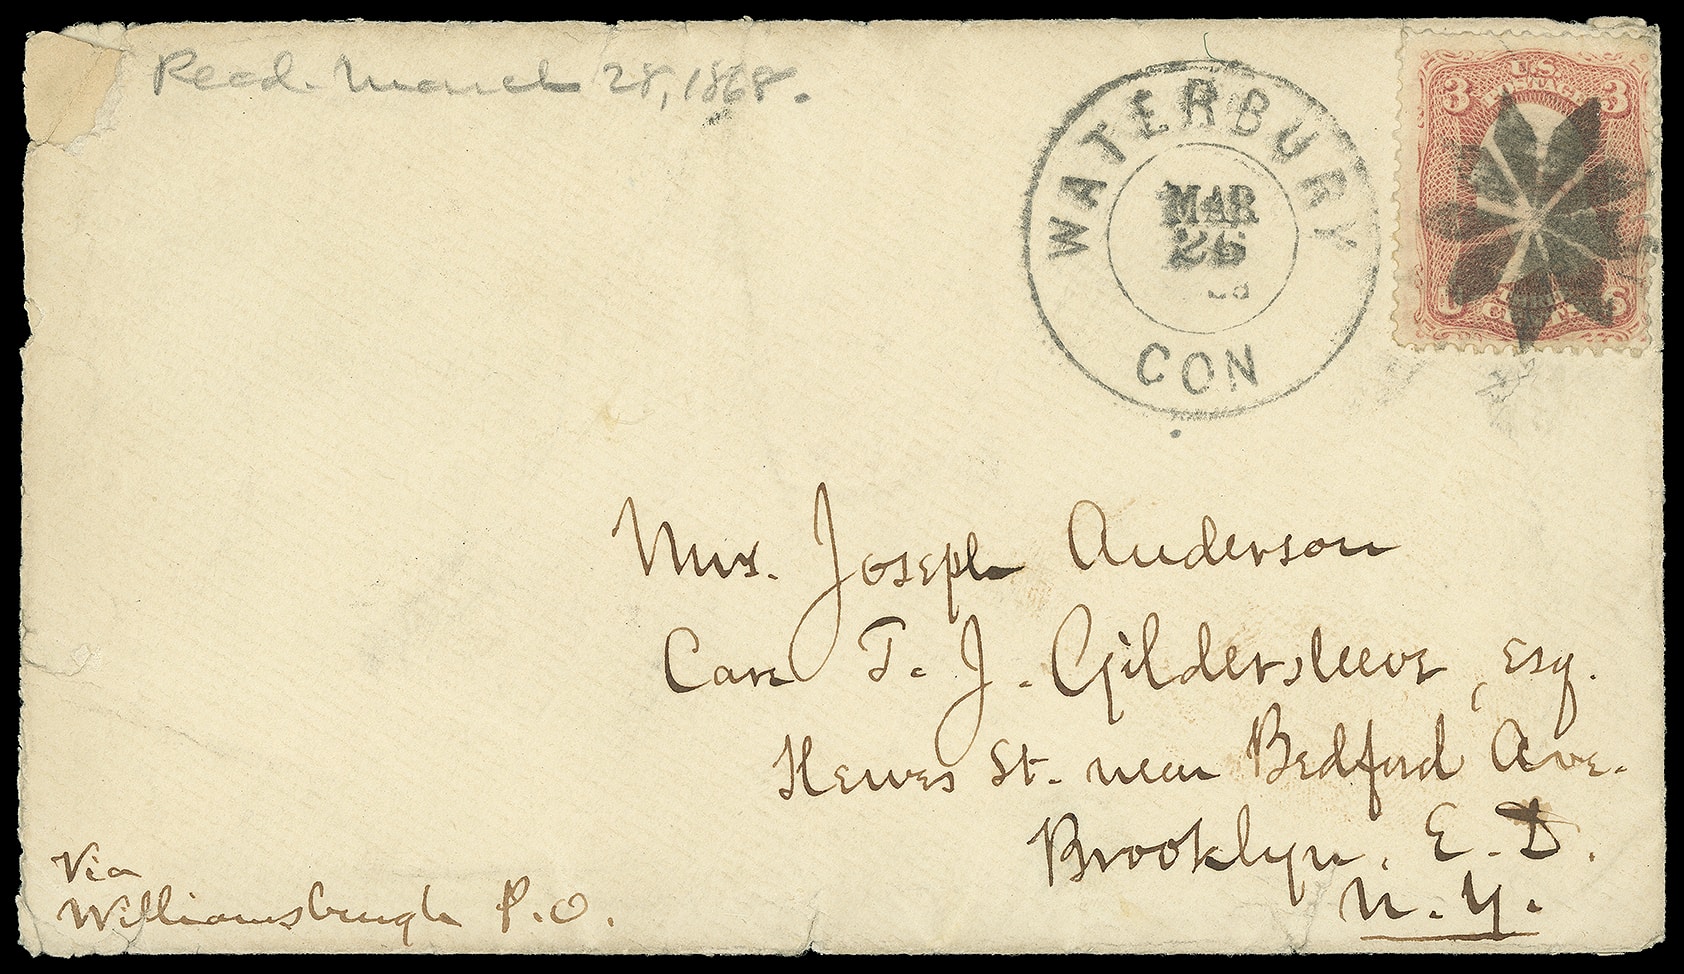 Recd. March 28, 1868.
WATERBURY
MAR
26
CON
3 U.S. 3
POSTAGE
Mrs. Joseph Anderson
Care T. J. Gildersleeve, Esq.
Hewes St. near Bedford Ave.
Brooklyn, E. D.
N. Y.
Via
Williamsburgh P. O.